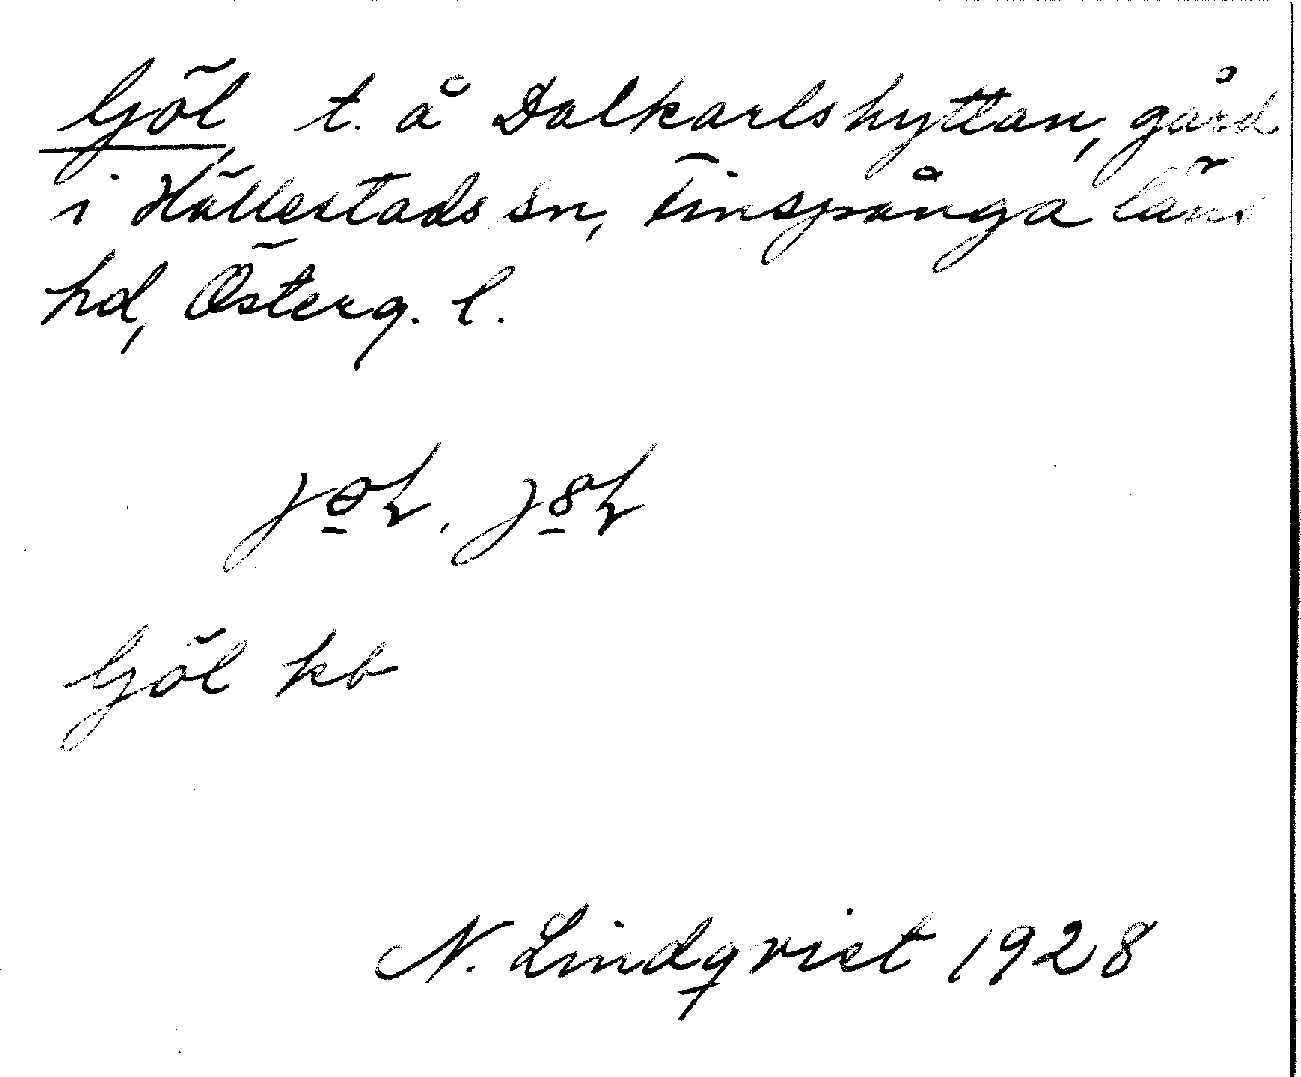 Göl, t. å Dalkarlshyttan, gård
i Hällestads sn, Finspånga läns
hd, Österg. l.
Göl kb
N. Lindqvist 1928